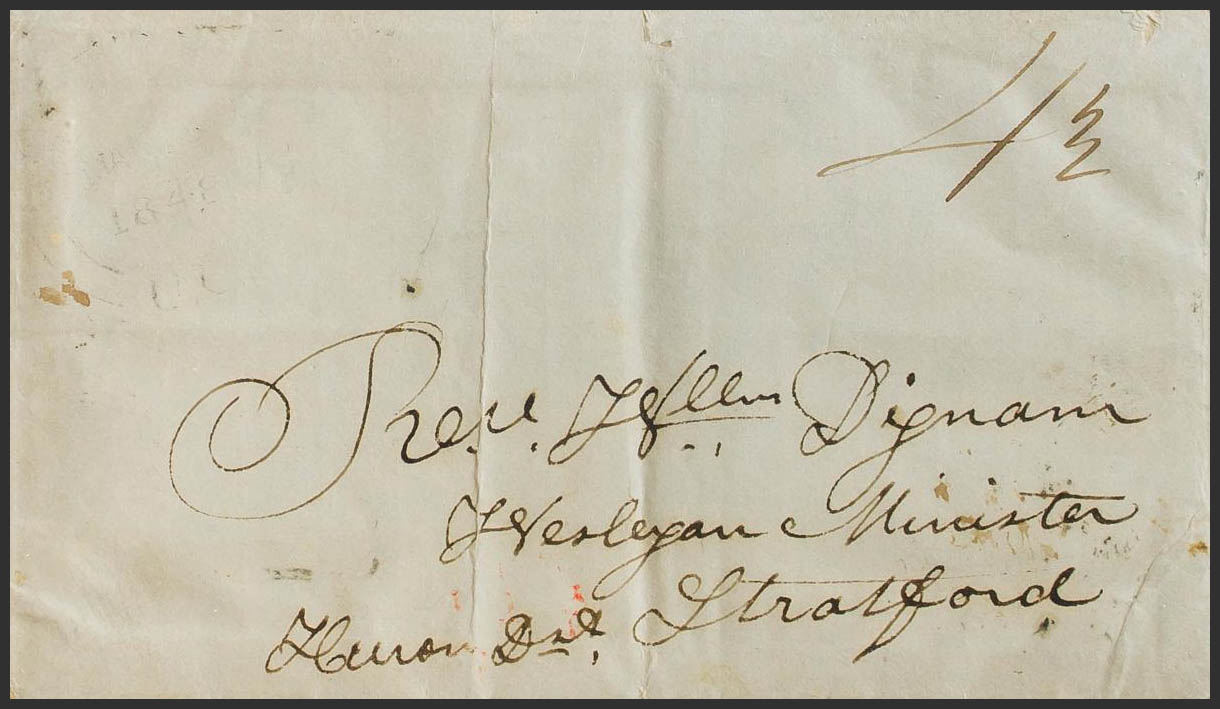 4½
184
Revd. Wllm Dignam
Wesleyan Minister
Stratford
Huron Dist.